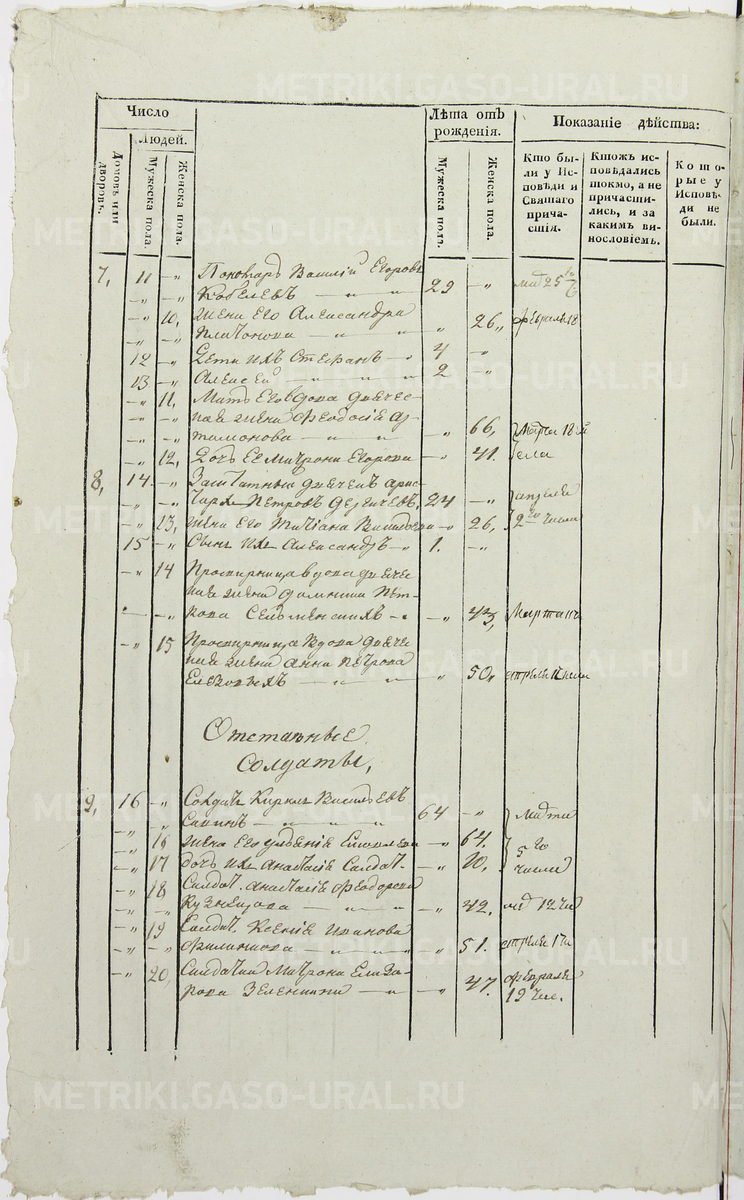 METRIKI.GASO-URAL.RU
Число
Людей.
Домовъ или дворовъ.
Мужеска пола.
Женска пола.
Лѣта отъ рожденія.
Мужеска пола.
Женска пола.
Показаніе дѣйства:
Кто были у Исповѣди и Святаго причастія.
Ктожъ исповѣдались токмо, а не причастились, и за какимъ винословіемъ.
Которые у Исповѣди не были.
7, 11 -„- Пономарь Василій Егоровъ
-„- -„- Кобелевъ — „ — „ 29 -„-
-„- 10, Жена Его Александра 26,, февраля 18
-„- -„- Платонова — „ — „
12 -„- Дети ихъ Стефанъ -„ 4 -„-
13 -„- Алексей — „ — „ 2 -„-
-„- 11, Мать Его вдова дьячес-
-„- -„- кая жена Феодосія Ар-
-„- -„- тамонова — „ — „ 66, Марта 18
-„- 12, Дочь Ее Матрона Егорова -„- 41.
8, 14 -„- Заштатный дьячекъ Арис-
-„- -„- тархъ Петровъ 24 -„- апреля
-„- 13, Жена Его Татіана Васильева -„- 26, 2го числа
15 -„- Сынъ Ихъ Александръ -„ 1. -„-
-„- 14 Просвирница вдова дьяче-
ская жена Домника Пет-
рова -„- 43, Марта
-„- 15 Просвирница вдова дьяче-
ская жена Анна Петрова
-„- 50,, апреля
Отставные
Солдаты,
9, 16 -„- Солдатъ Кирилъ Васильевъ
-„- -„- Санинъ — „ — „ 64 -„- марта
-„- 16 Жена Его -„- 64. 5го
-„- 17 Дочь Ихъ Анастасія Солдат. -„- 20, числа
-„- 18 Солдат. Анастасія Феодорова
-„- -„- Кузнецова — „ — „ -„- 42, 12 чи
-„- 19 Солдат. Ксенія Иванова
-„- -„- — „ — „ 51.
-„- 20, Солдатка Матрона Елиза-
рова Зеленина — „ -„- 47. февраля
19 чис.